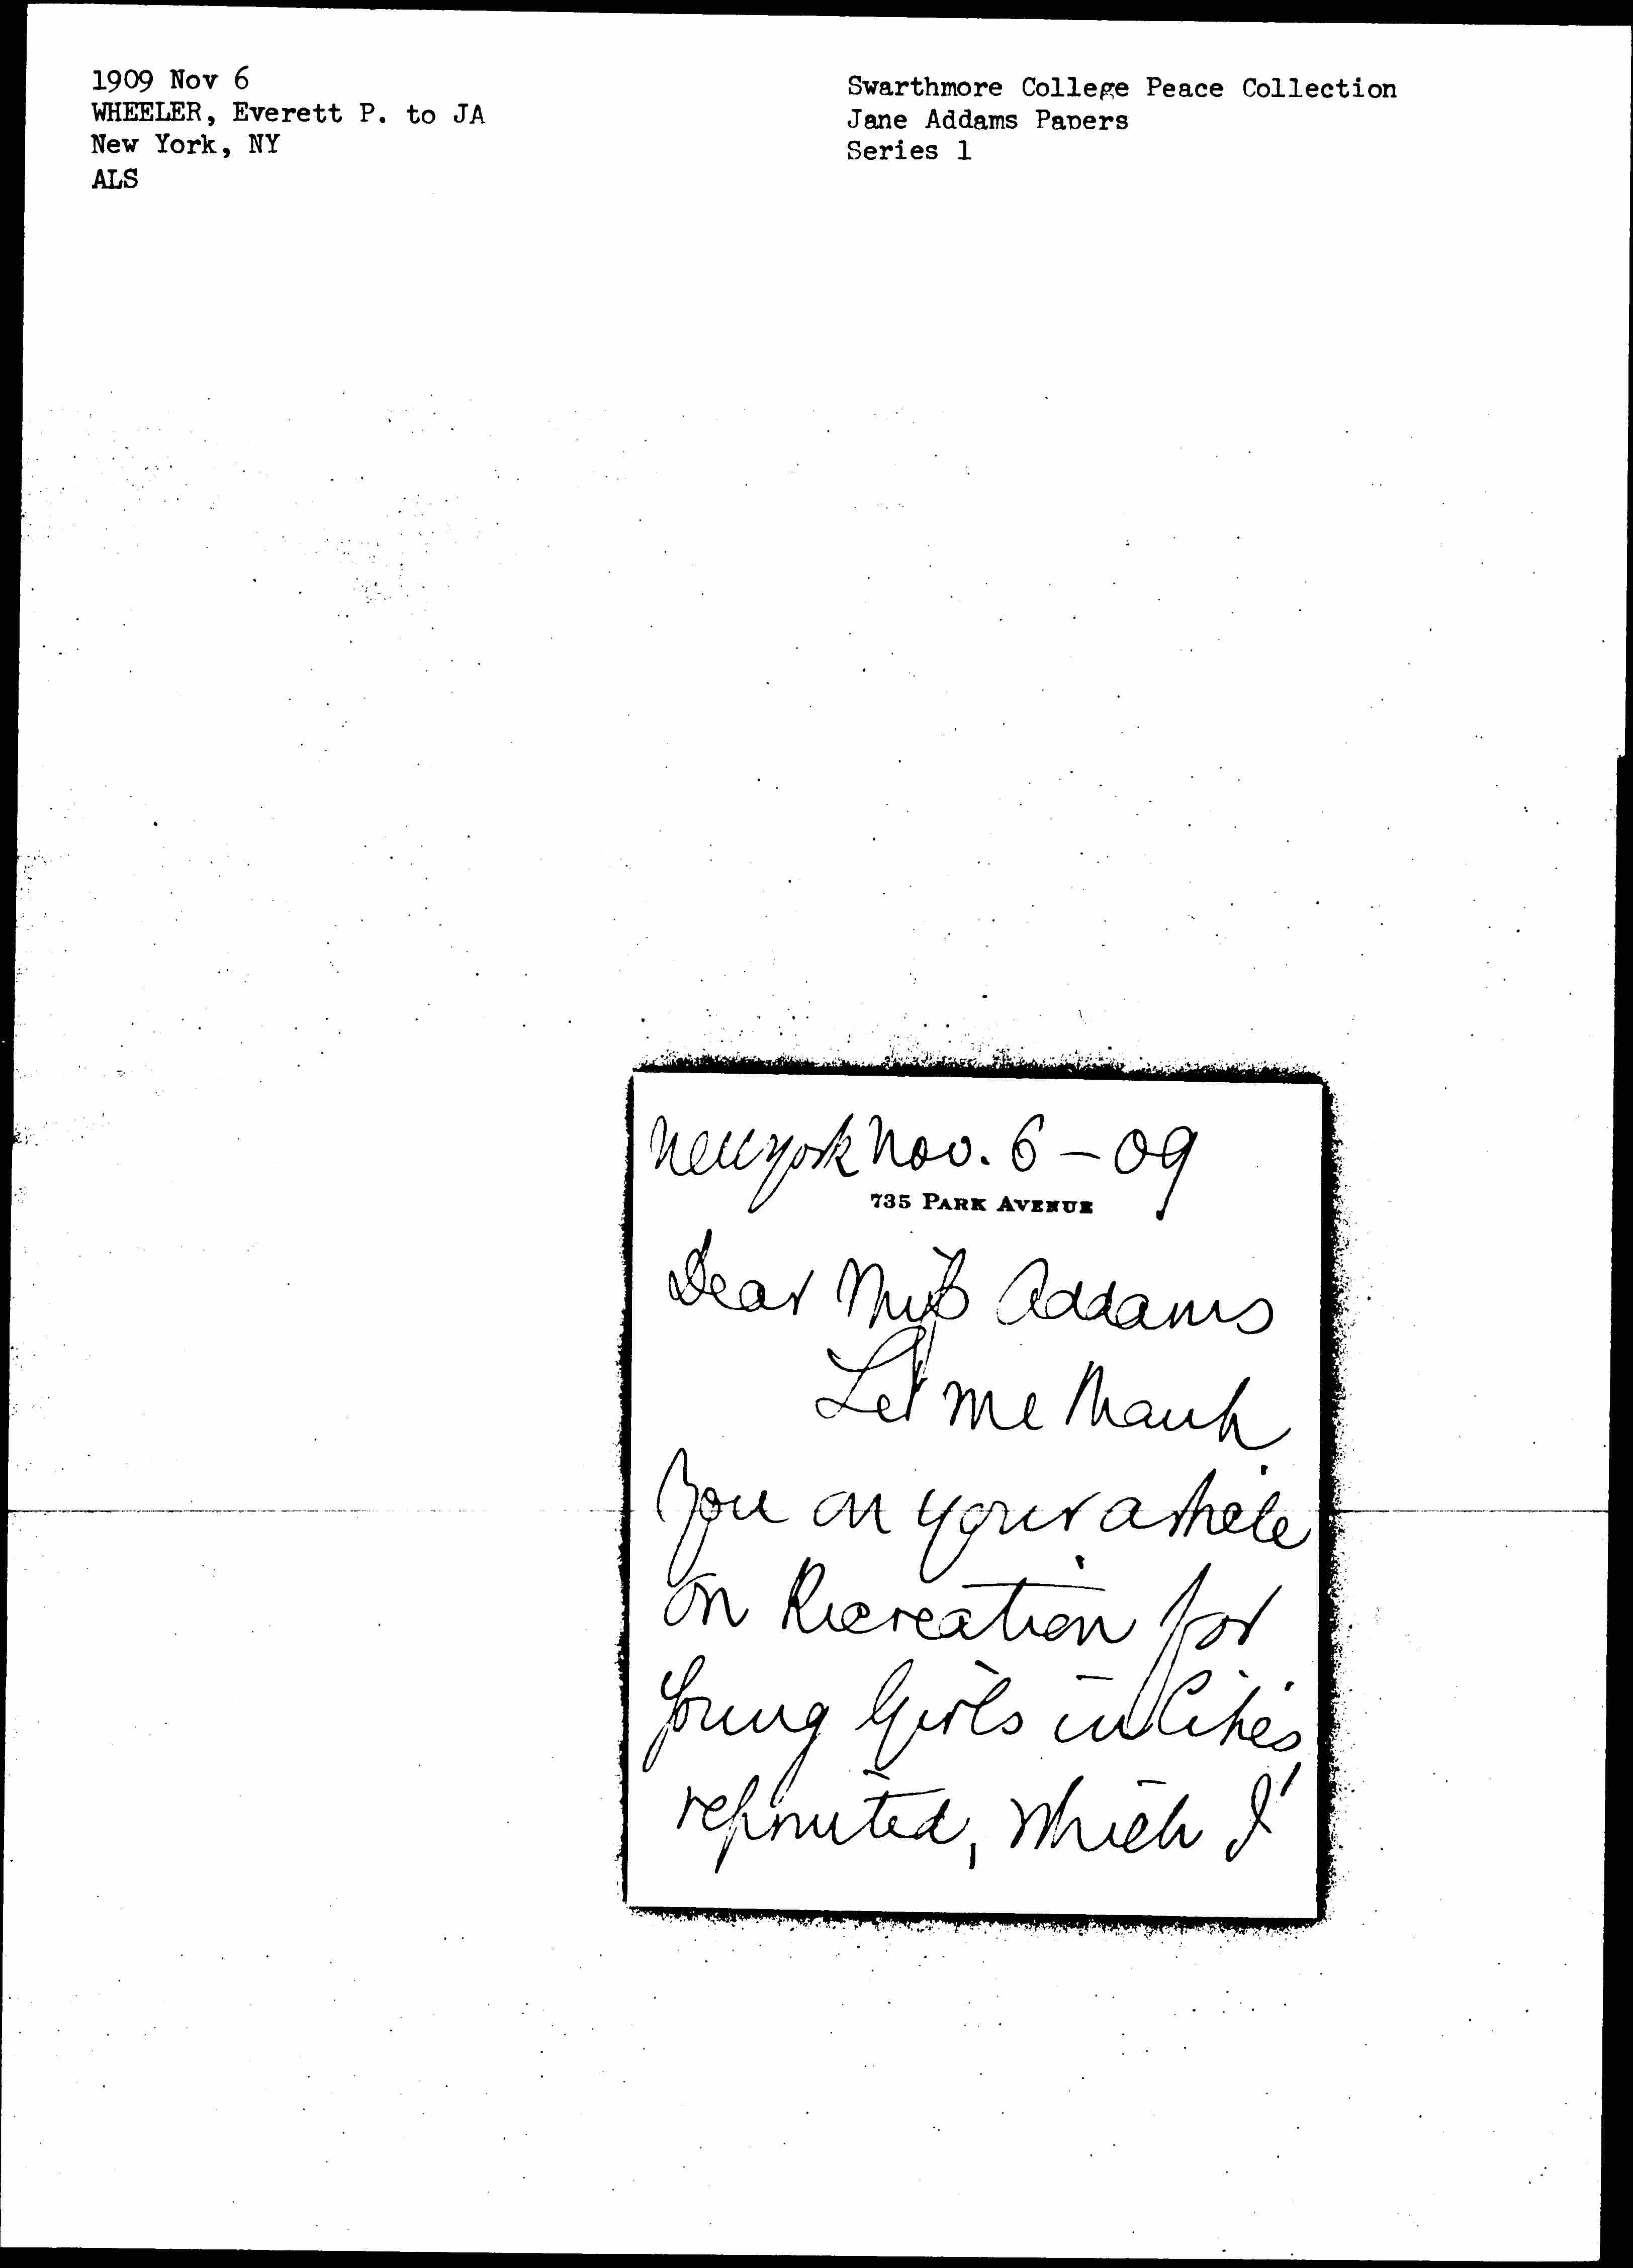 1909 Nov 6
WHEELER, Everett P. to JA
New York, NY
ALS
Swarthmore College Peace Collection
Jane Addams Papers
Series 1
New York Nov. 6 – 09
735 PARK AVENUE
Dear Miss Addams
Let me thank
you on your article
on Recreation for
Young Girls in Cities,
reprinted, which I